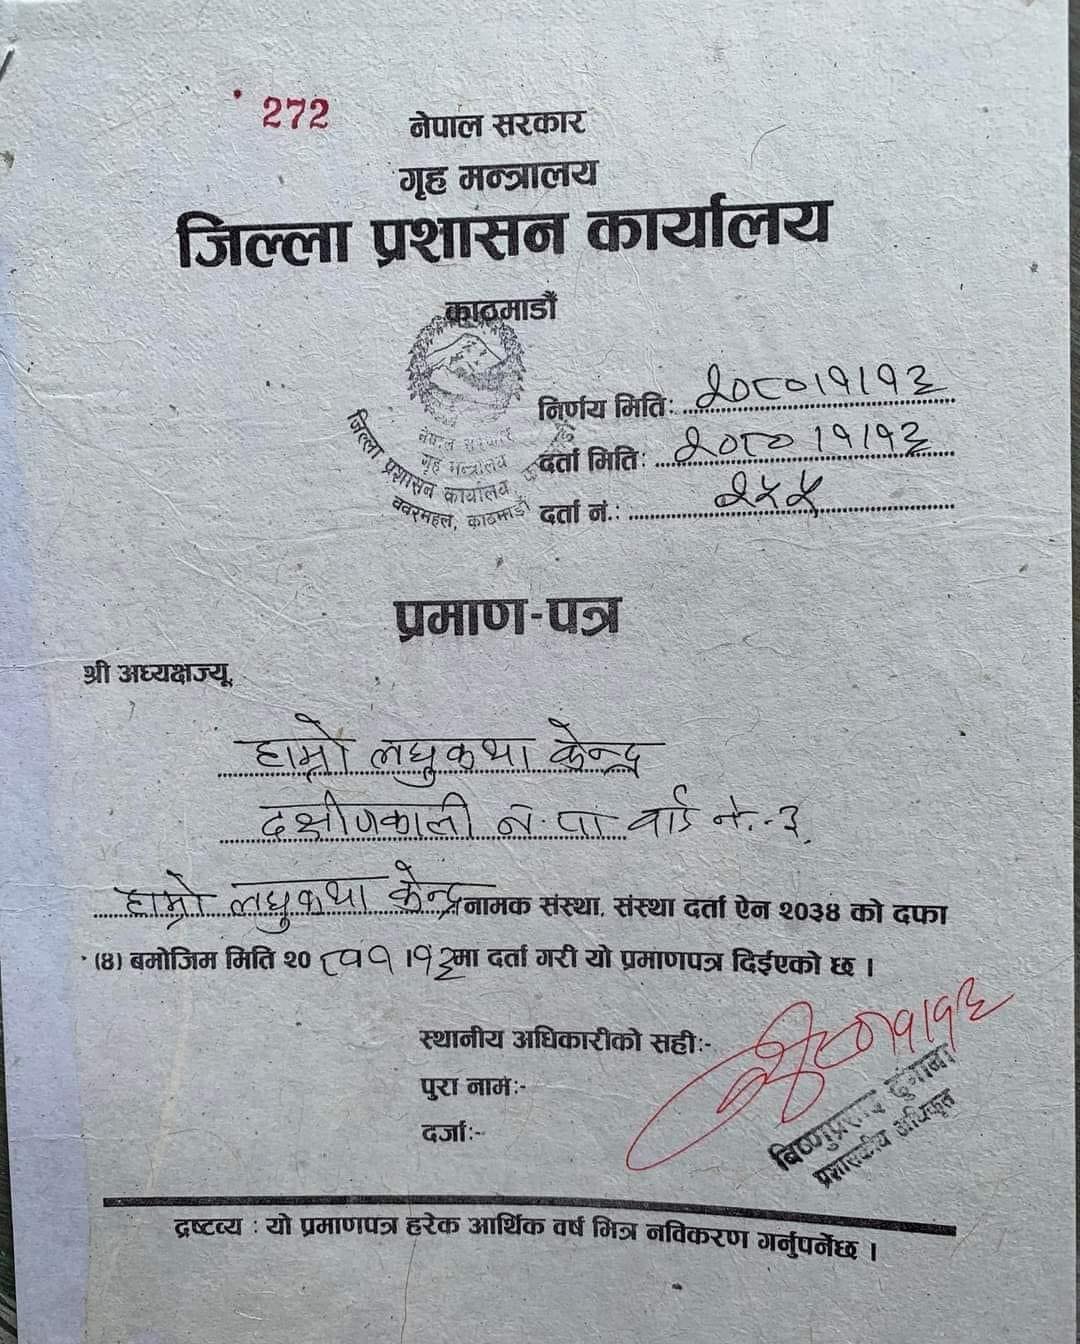 272
नेपाल सरकार
गृह मन्त्रालय
जिल्ला प्रशासन कार्यालय
काठमाडौं
नेपाल सरकार
गृह मन्त्रालय
जिल्ला प्रशासन कार्यालय
बबरमहल, काठमाडौं
निर्णय मिति: २०८०।१।१३
दर्ता मिति: २०८०।१।१३
दर्ता नं.: २५५
प्रमाण-पत्र
श्री अध्यक्षज्यू,
हाम्रो लघुकथा केन्द्र
दक्षीणकाली न.पा वार्ड नं.-३
हाम्रो लघुकथा केन्द्र नामक संस्था, संस्था दर्ता ऐन २०३४ को दफा
(४) बमोजिम मिति २० मा दर्ता गरी यो प्रमाणपत्र दिईएको छ ।
स्थानीय अधिकारीको सही:-
पुरा नाम:-
दर्जा:-
बिष्णुप्रसाद ढुंगाना
प्रशासकीय अधिकृत
द्रष्टव्य : यो प्रमाणपत्र हरेक आर्थिक वर्ष भित्र नविकरण गर्नुपर्नेछ ।